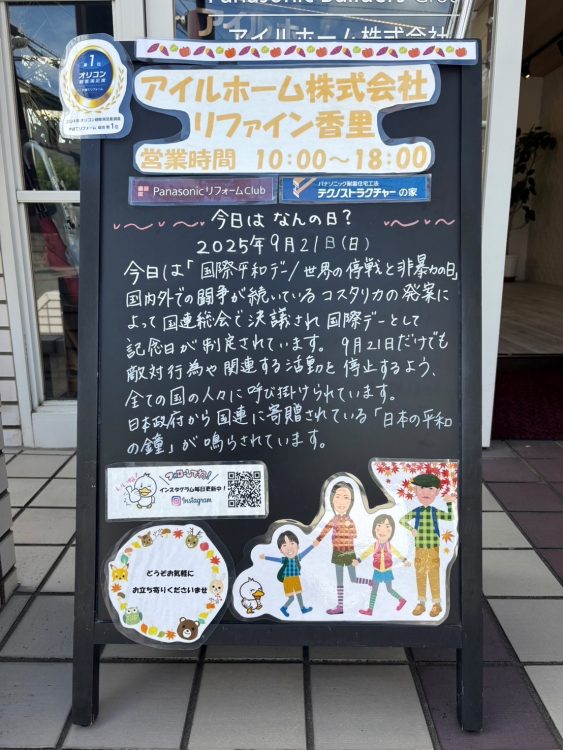 Panasonic Builders Group
アイルホーム株式会社
第1位
オリコン
顧客満足度
アイルホーム株式会社
リファイン香里
営業時間 10:00〜18:00
Panasonic リフォーム Club
パナソニック耐震住宅工法
テクノストラクチャーの家
今日は なんの日?
2025年9月21日(日)
今日は「国際平和デー/世界の停戦と非暴力の日」
国内外での闘争が続いているコスタリカの発案に
よって国連総会で決議され国際デーとして
記念日が制定されています。9月21日だけでも
敵対行為や関連する活動を停止するよう、
全ての国の人々に呼び掛けられています。
日本政府から国連に寄贈されている「日本の平和
の鐘」が鳴らされています。
フォローしてね!
いいね!
インスタグラム毎日更新中!
Instagram
どうぞお気軽に
お立ち寄りくださいませ